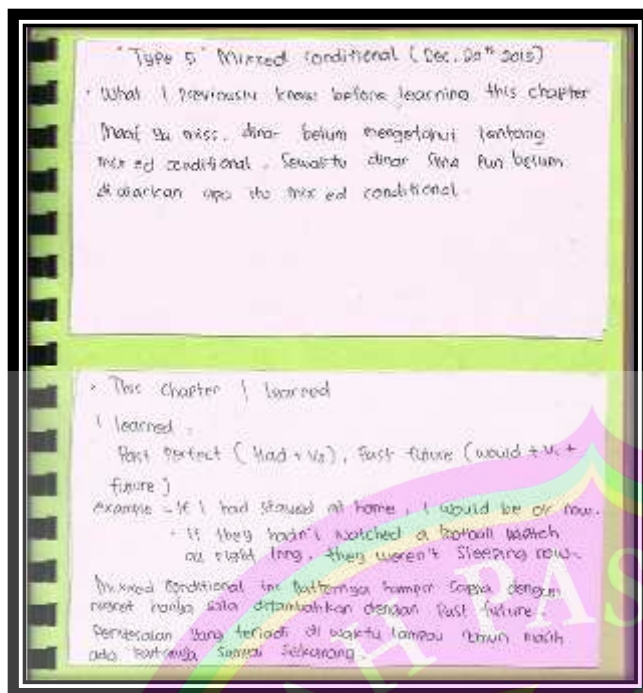 "Type 5" Mixxed conditional (Dec, 20th 2015)
• What I Previously know before learning this chapter
Maaf ya miss, dinar belum mengetahui tentang
mix ed conditional. Sewaktu dinar SMA pun belum
di ajarkan apa itu mix ed conditional.
• This Chapter I learned
I learned
Past Perfect ( Had + V3), Past future (would + V1 +
future )
example - If I had stayed at home, I would be ok now.
- If they hadn't watched a football match
all night long, they weren't sleeping now.
Mixxed Conditional ini Patternya hampir sama dengan
regret hanya saja ditambahkan dengan Past future
Penyesalan yang terjadi di waktu lampau namun masih
ada sampai sekarang.
AH PAS